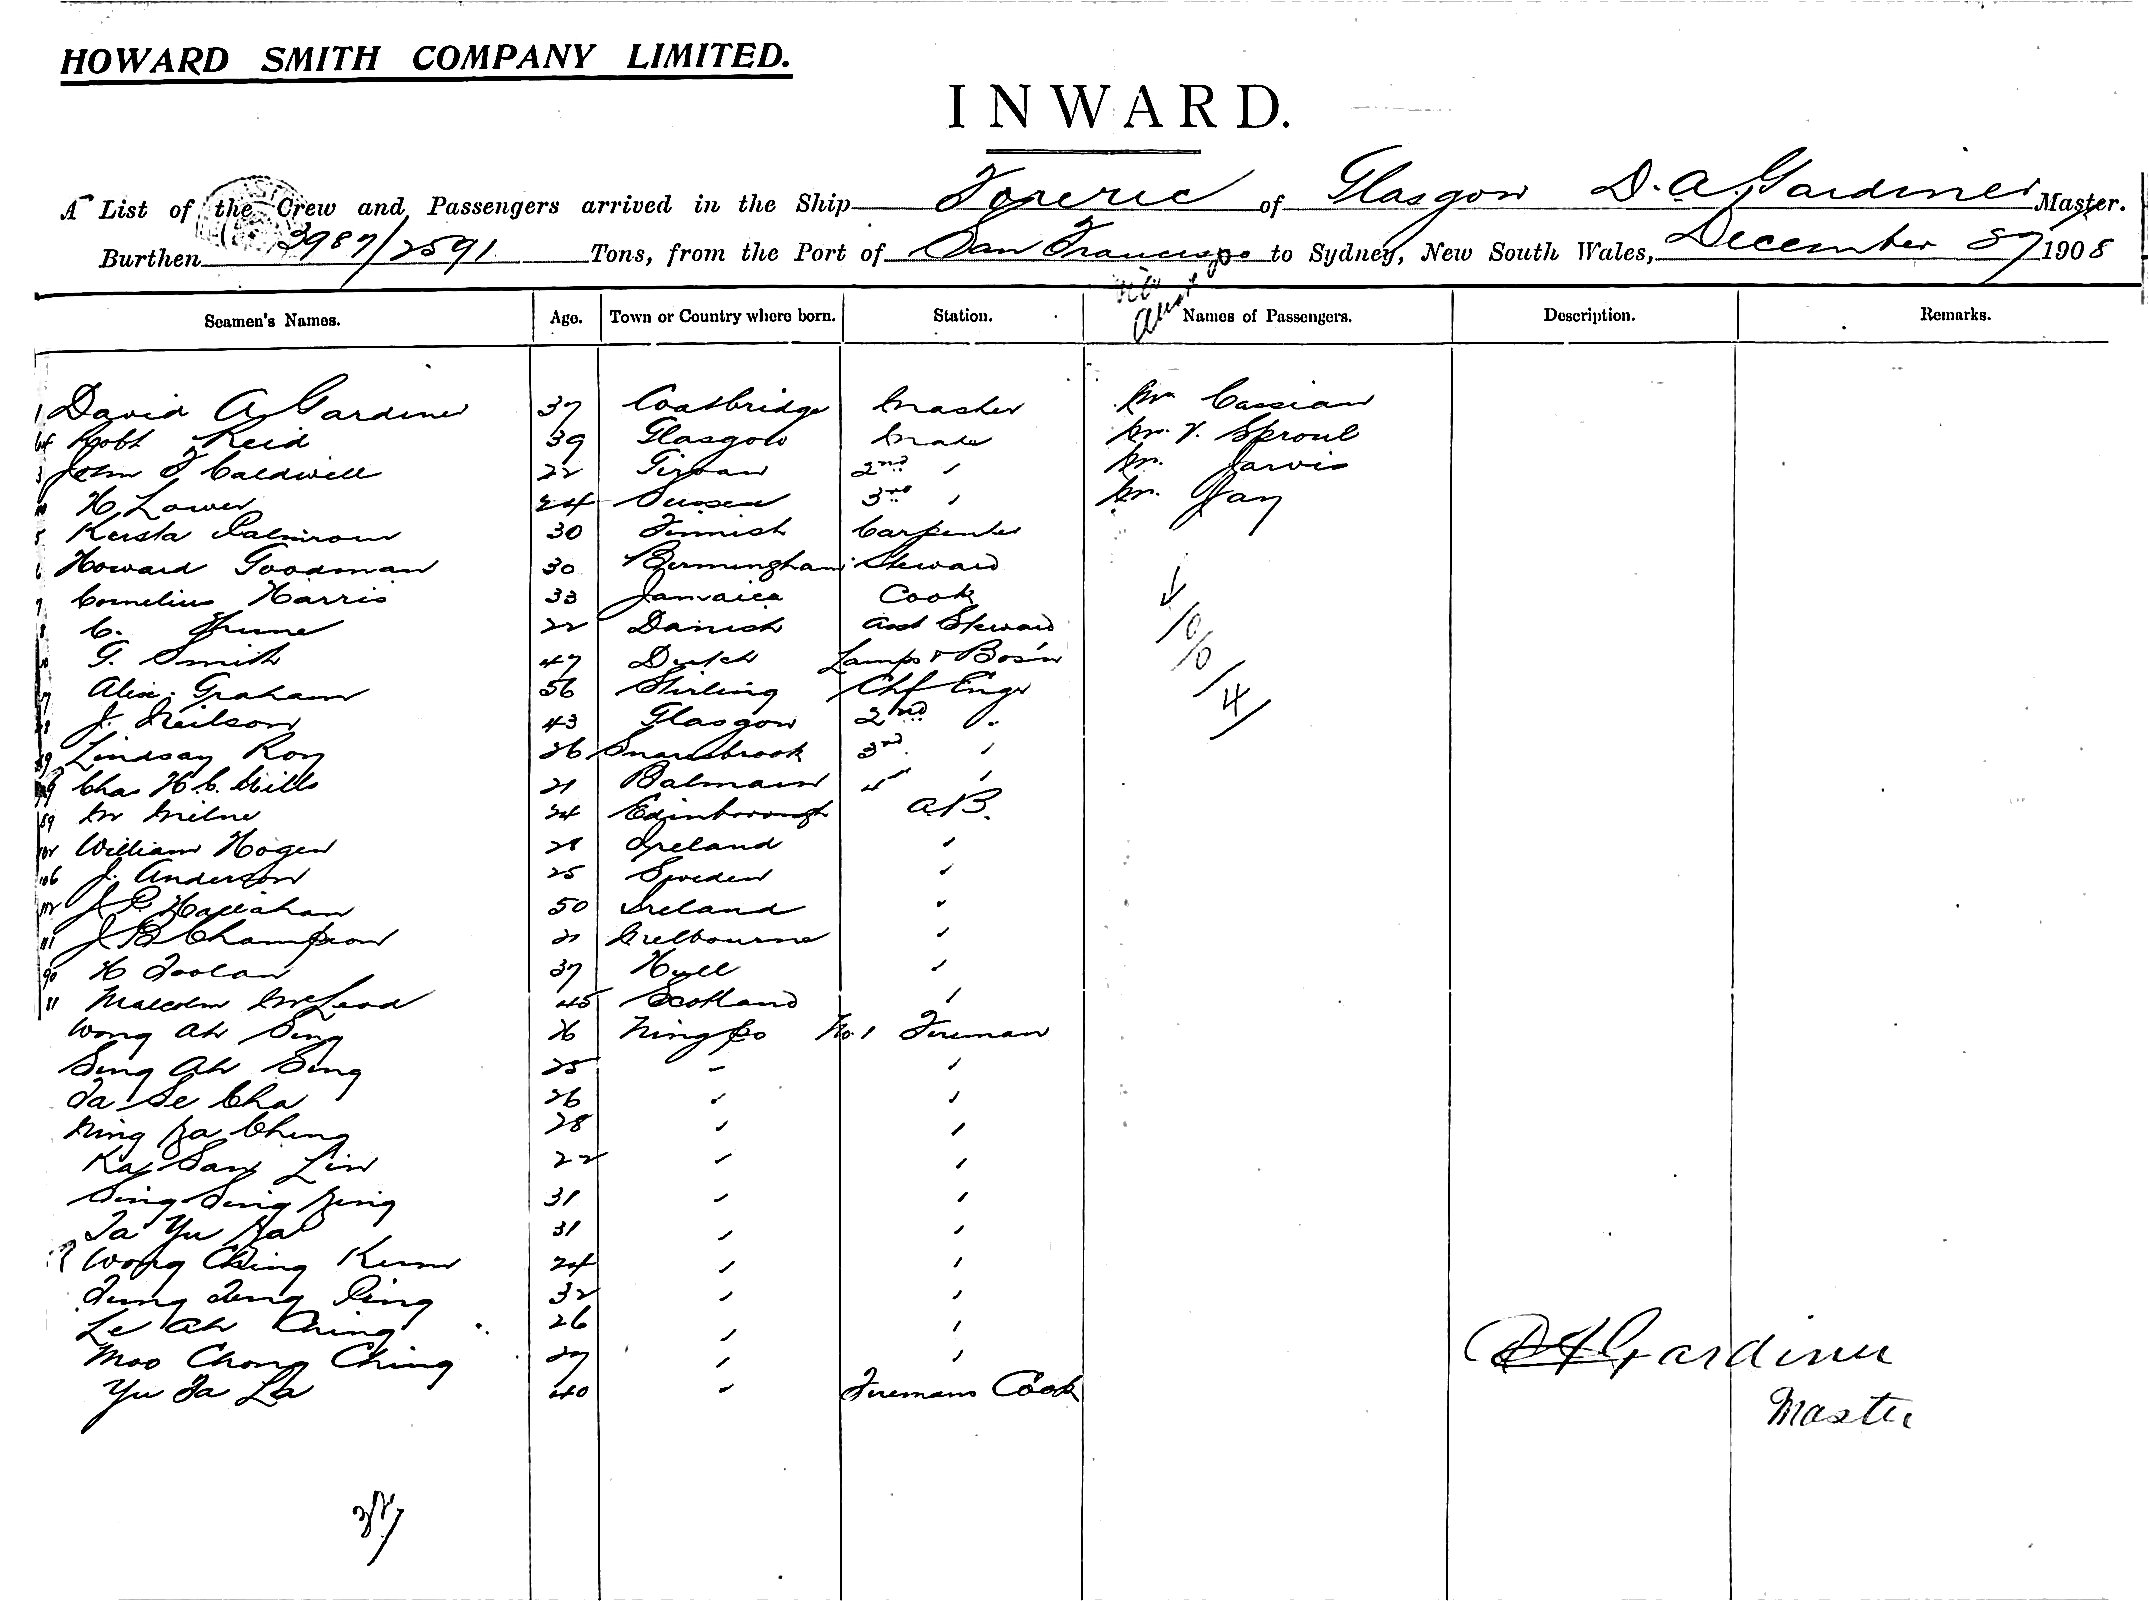 HOWARD SMITH COMPANY LIMITED.
INWARD.
A List of the Crew and Passengers arrived in the Ship Foreric of Glasgow D. A. Gardiner Master.
Burthen 3987/2591 Tons, from the Port of San Francisco to Sydney, New South Wales, December 1908
Seamen's Names. Age. Town or Country where born. Station. Names of Passengers. Description. Remarks.
1 David A Gardiner 37 Coatbridge Master Mr Cassian
Robt Reid 39 Glasgow Mate Mr. V. Sproul
3 John T Caldwell 22 Girvan 2nd " Mr. Jarvis
H. Lower 24 Sussex 3rd " Mr. Jay
5 30 Finnish Carpenter
6 Howard Goodman 30 Birmingham Steward
7 Cornelius Harris 33 Jamaica Cook
C. 22 Danish Asst Steward
G. Smith 47 Dutch Lamps & Bos'n
Alex. Graham 56 Stirling Chf Engr
J. Neilson 43 Glasgow 2nd "
Lindsay Roy 26 Snaresbrook 3rd "
Chas H. C. Mills 21 Balmain 4th "
W Milne 24 Edinborough A.B.
William Hogen 21 Ireland "
J. Anderson 25 Sweden "
J P Hallahan 50 Ireland "
J B Champion 21 Melbourne "
H Toolan 37 Hull "
Malcolm McLeod 45 Scotland "
Wong Ah Sing 26 Ningpo No. 1 Fireman
Sung Ah Sing 25 " "
Ta Se Cha 26 " "
Ning Za Ching 28 " "
Ka San Lin 22 " "
Sing Sing Zing 31 " "
Ta Yu Za 31 " "
Wong Ching Kum 24 " "
Tung Tung Ping 32 " "
Le Ah Ching 26 " "
Moo Chong Ching 27 " "
Yu Ta La 40 " Firemans Cook
D A Gardiner
Master